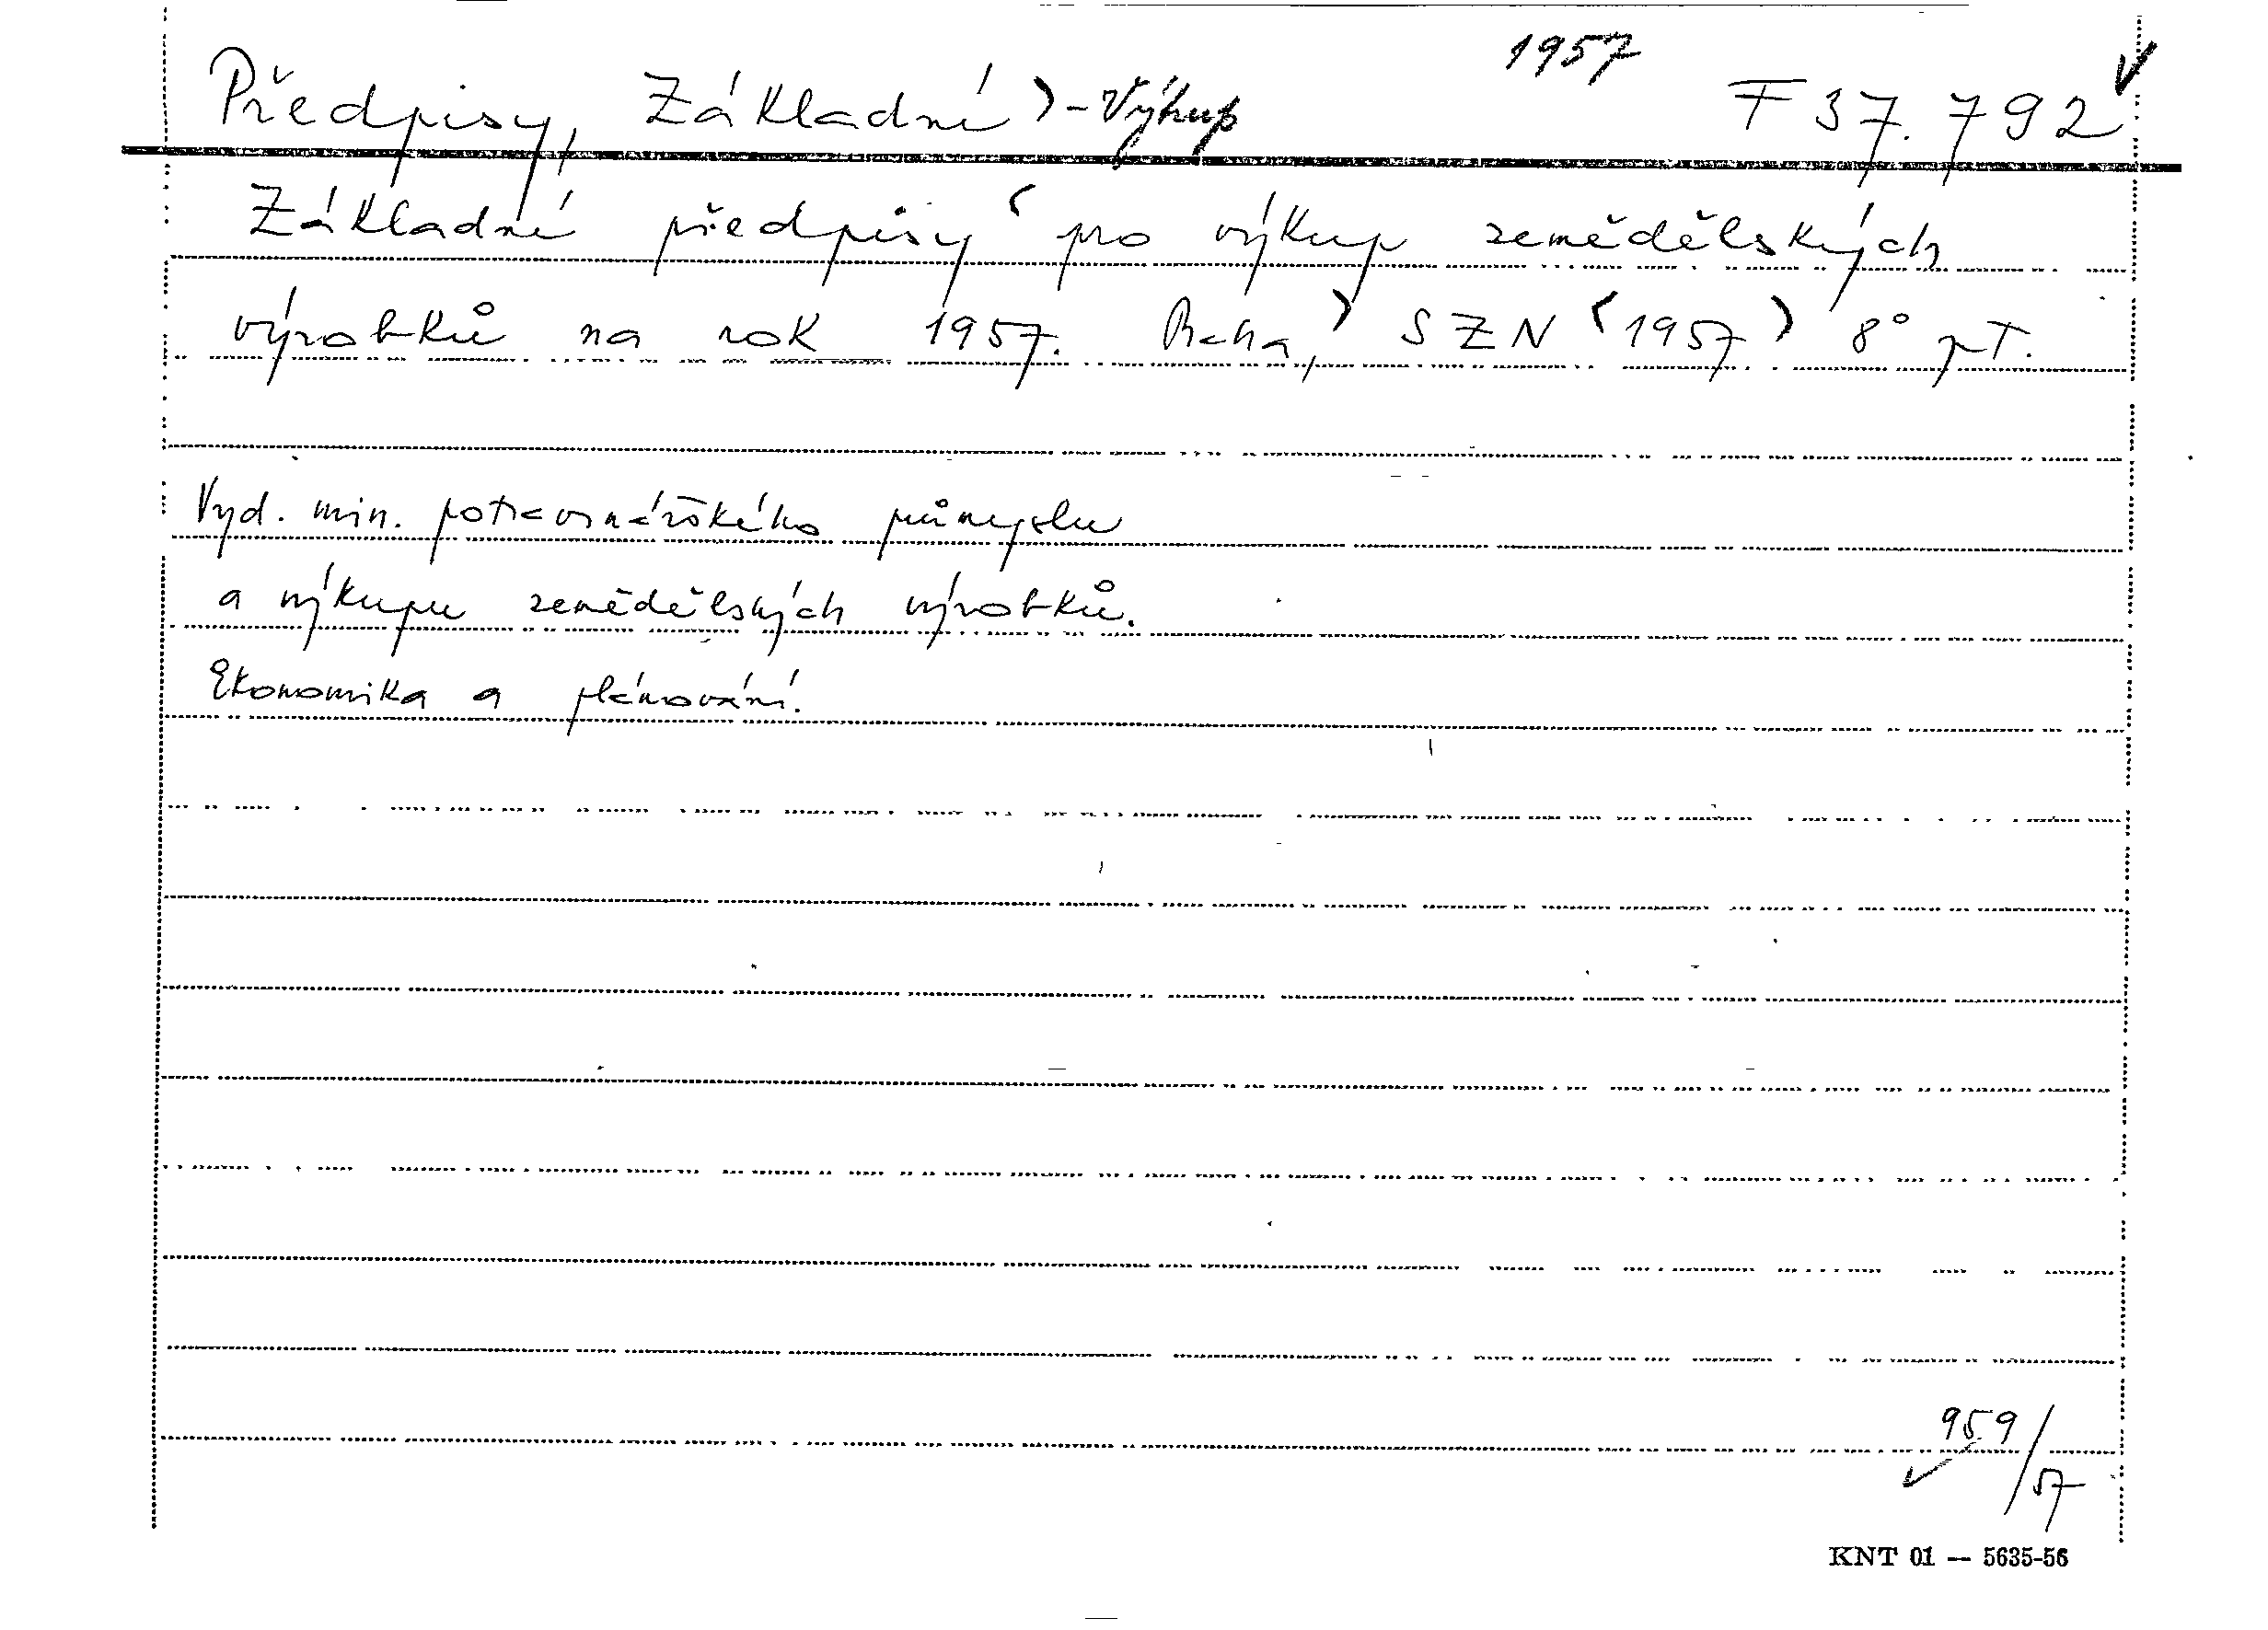 1957
Předpisy, Základní) - Výkup F 37.792 ✓
Základní předpisy (pro výkup zemědělských
výrobků na rok 1957. Praha,) SZN (1957) 8° pT.
Vyd. min. potravinářského průmyslu
a výkupu zemědělských výrobků.
Ekonomika a plánování.
959/57
✓
KNT 01 — 5635-56